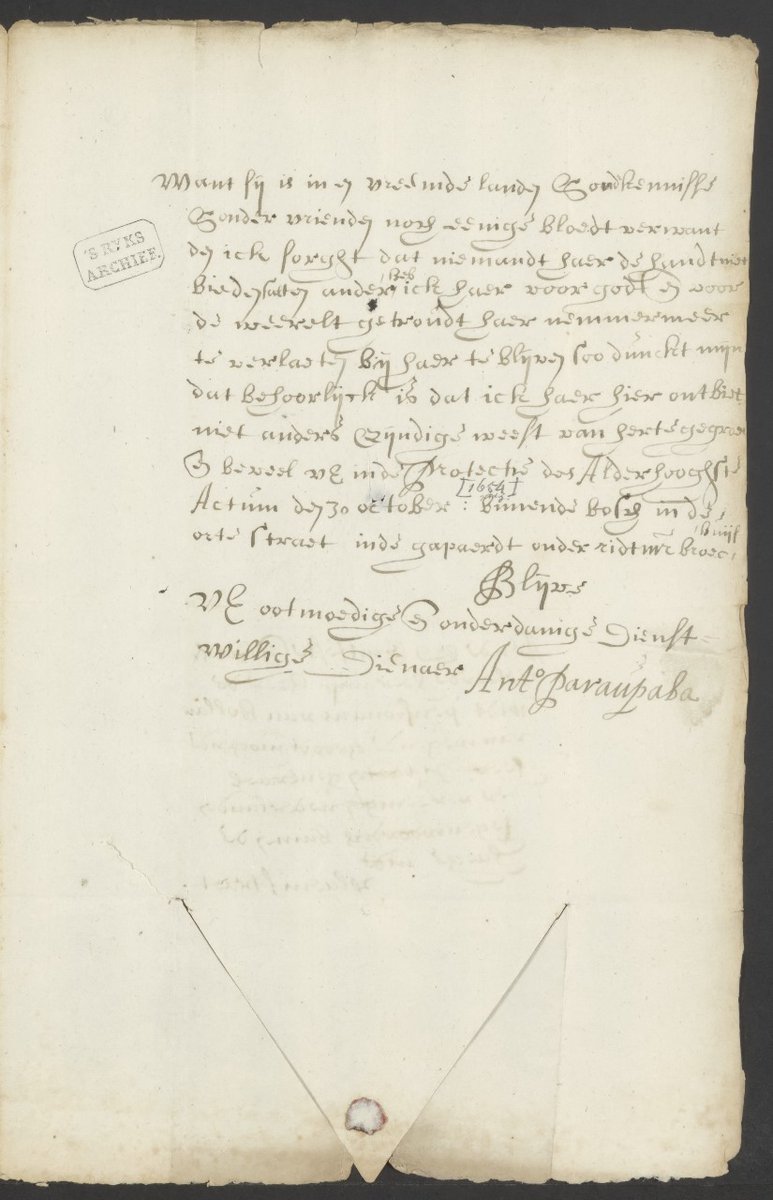 Want sij is in en vreemde landen Sondkennisse
Sonder vrienden noch eenige bloedt verwant
den ick sorght dat niemandt haer de handt niet
bieden sallen anders heb ick haer voor godt en voor
de weerelt getroudt haer nemmermeer
te verlaeten bij haer te blijven soo dunckt mijn
dat behoorlijck is dat ick haer hier ontbiet
niet anders Eijndige weest van herte gegroet
En beveel UE inde Protectie des Alderhooghste
[1654]
Actum den 30 october : binnende bosch in de
orte straet inde gapaerdt onder ridtmr
Blijve
UE ootmoedige En onderdanige Dienst
willige Dienaer Anto Paraupaba
'S RYKS
ARCHIEF.